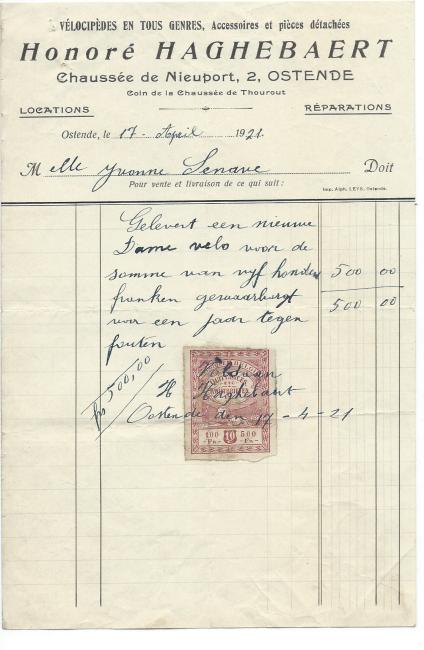 VÉLOCIPÈDES EN TOUS GENRES, Accessoires et pièces détachées
Honoré HAGHEBAERT
Chaussée de Nieuport, 2, OSTENDE
Coin de la Chaussée de Thourout
LOCATIONS RÉPARATIONS
Ostende, le 17 - April 1921.
Melle Yvonne Senave Doit
Pour vente et livraison de ce qui suit :
Imp. Alph. LEYS, Ostende.
Gelevert een nieuwe
Dame velo voor de
somme van vyf honder 500 00
franken gewaarborgt 500 00
voor een jaar tegen
fouten
frs 500,00
Voldaan
H Haghebaert
Oostende den 17 - 4 - 21
100 10 500
Fr. Fr.